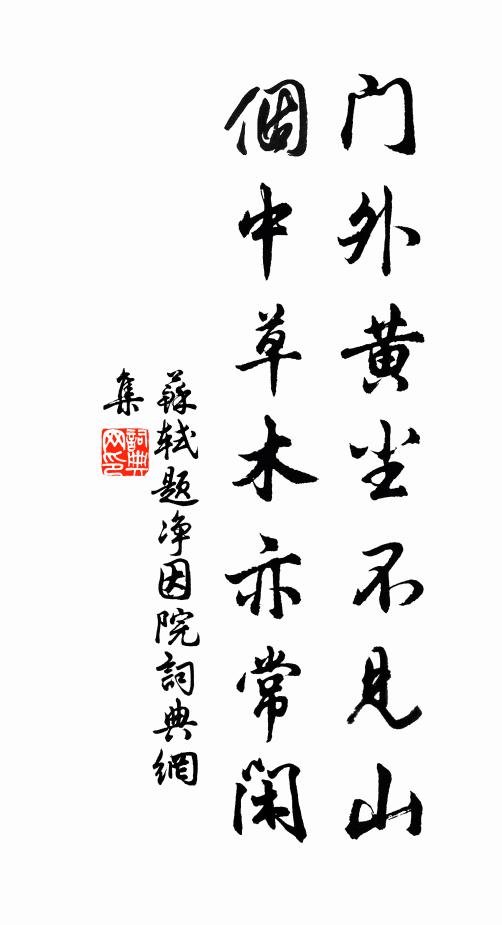 门外黄尘不见山
個中草木亦常闲
蘇轼题净因院詞典網
集
詞典
网印